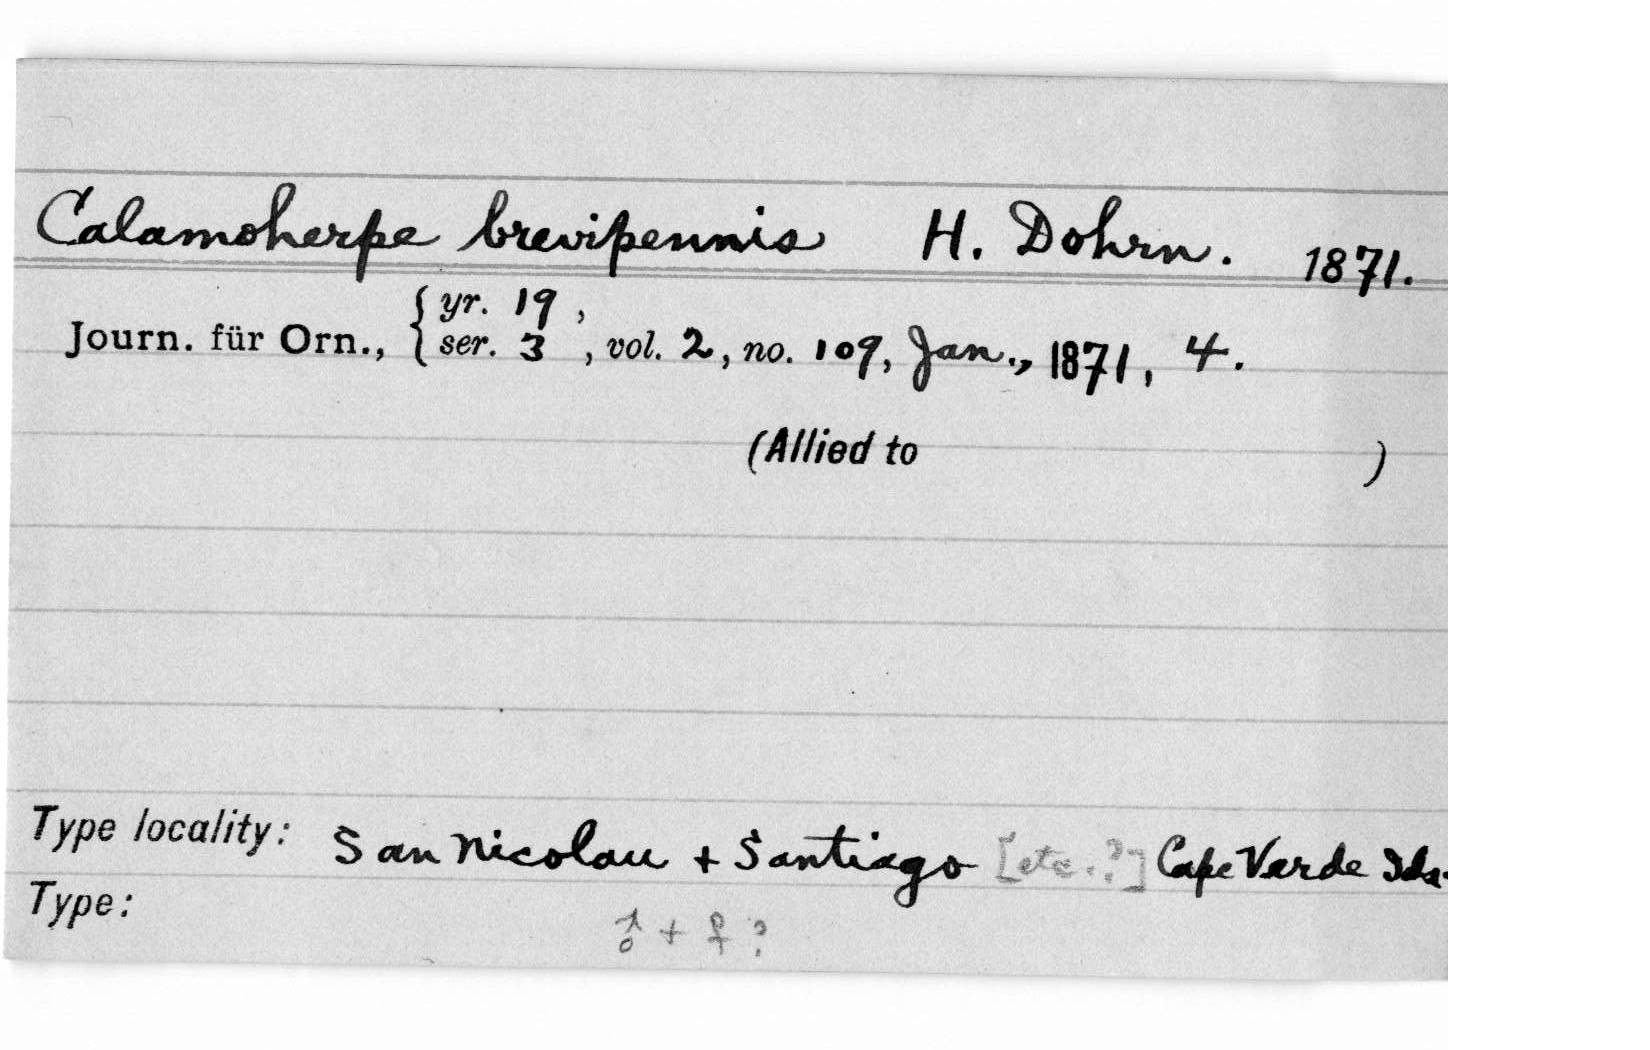 Calamoherpe brevipennis H. Dohrn. 1871.
Journ. für Orn., { yr. 19 ,
ser. 3 , vol. 2, no. 109, Jan., 1871, 4.
(Allied to )
Type locality: San Nicolau + Santiago [etc.?] Cape Verde Ids.
Type: ♂ + ♀ ?